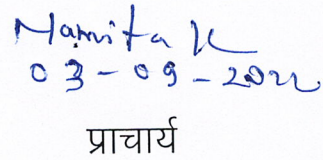 Namita K
03-09-2022
प्राचार्य